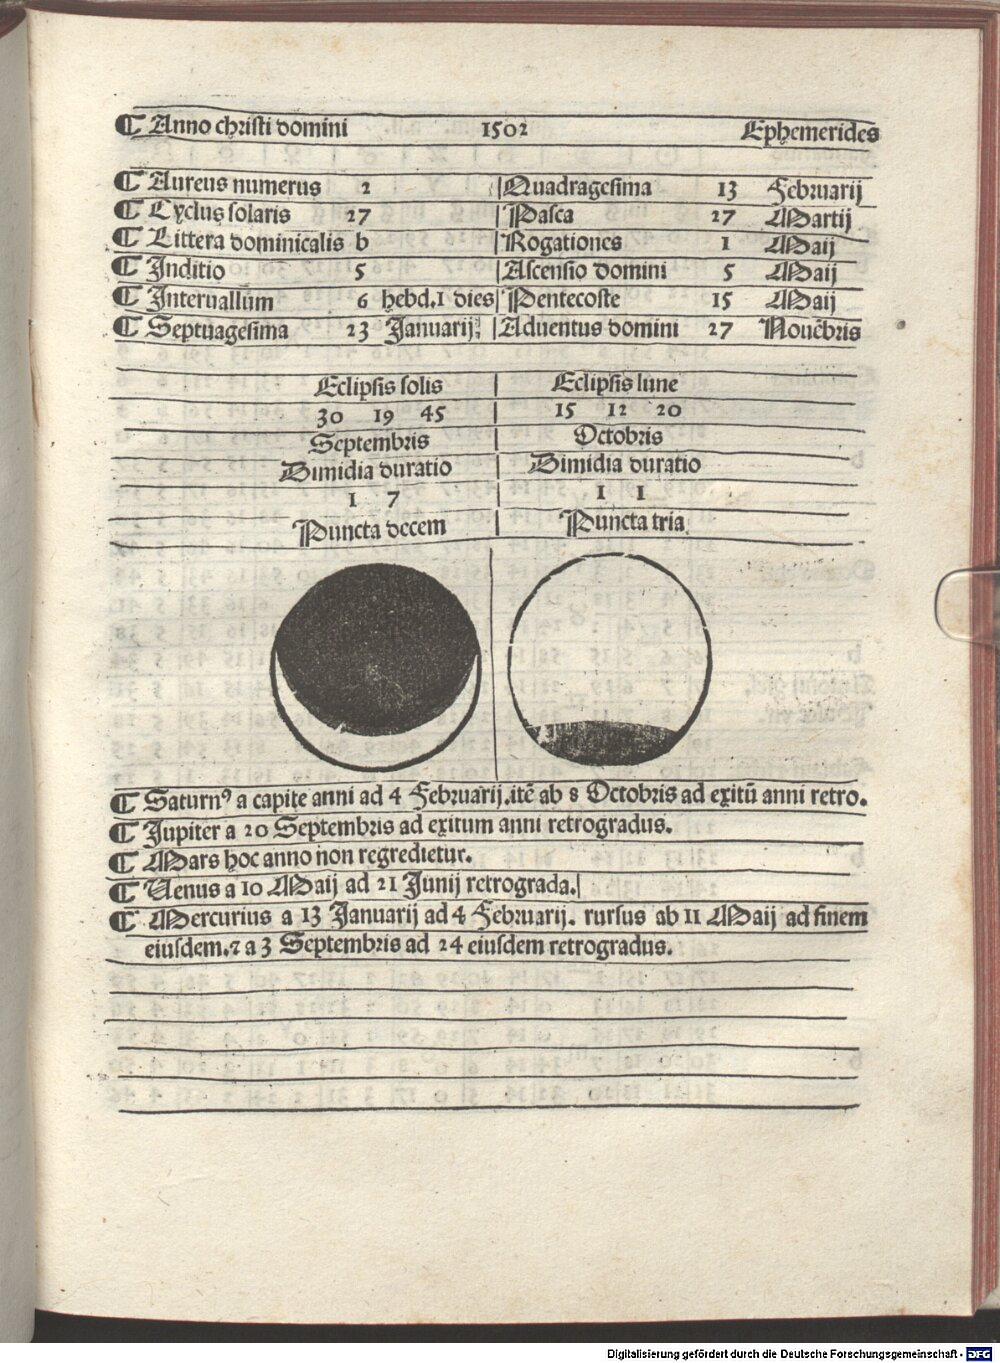 ¶ Anno christi domini 1502 Ephemerides
¶ Aureus numerus 2 | Quadragesima 13 Februarij
¶ Cyclus solaris 27 | Pasca 27 Martij
¶ Littera dominicalis b | Rogationes 1 Maij
¶ Inditio 5 | Ascensio domini 5 Maij
¶ Interuallum 6 hebd. 1 dies | Pentecoste 15 Maij
¶ Septuagesima 23 Januarij. | Aduentus domini 27 Nouēbris
Eclipsis solis | Eclipsis lune
30 19 45 | 15 12 20
Septembris | Octobris
Dimidia duratio | Dimidia duratio
1 7 | 1 1
Puncta decem | Puncta tria
¶ Saturnꝰ a capite anni ad 4 Februarij. itē ab 8 Octobris ad exitū anni retro.
¶ Jupiter a 20 Septembris ad exitum anni retrogradus.
¶ Mars hoc anno non regredietur.
¶ Uenus a 10 Maij ad 21 Junij retrograda.
¶ Mercurius a 13 Januarij ad 4 Februarij. rursus ab 11 Maij ad finem
eiusdem. ⁊ a 3 Septembris ad 24 eiusdem retrogradus.
Digitalisierung gefördert durch die Deutsche Forschungsgemeinschaft - DFG